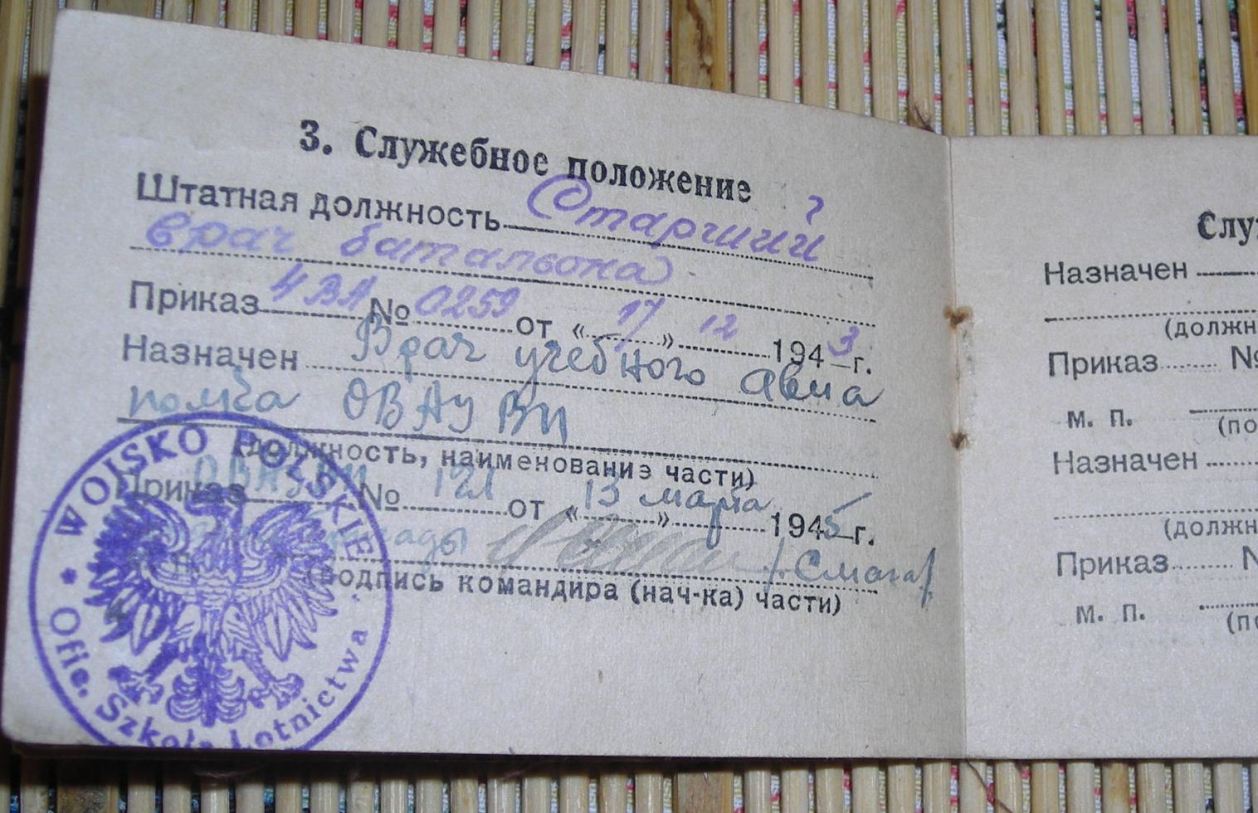 3. Служебное положение
Штатная должность Старший
врач батальона
Приказ 4 ВА № 0259 от « 17 » 12 1943 г.
Назначен Врач учебного авиа
ОВАУ ВП
(должность, наименование части)
Приказ ОВАУ ВП № 121 от « 13 » марта 1945 г.
/Смага/
(подпись командира (нач-ка) части)
WOJSKO POLSKIE
Ofic. Szkoła Lotnictwa
Слу
Назначен
(должн
Приказ №
м. п. (по
Назначен
(должн
Приказ
м. п. (по